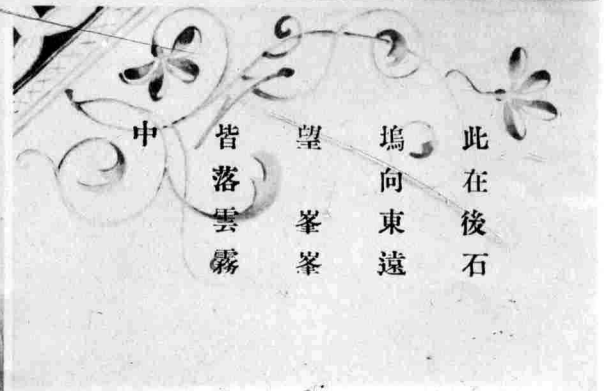 此在後石
塢向東遠
望　峯峯
皆落雲霧
中